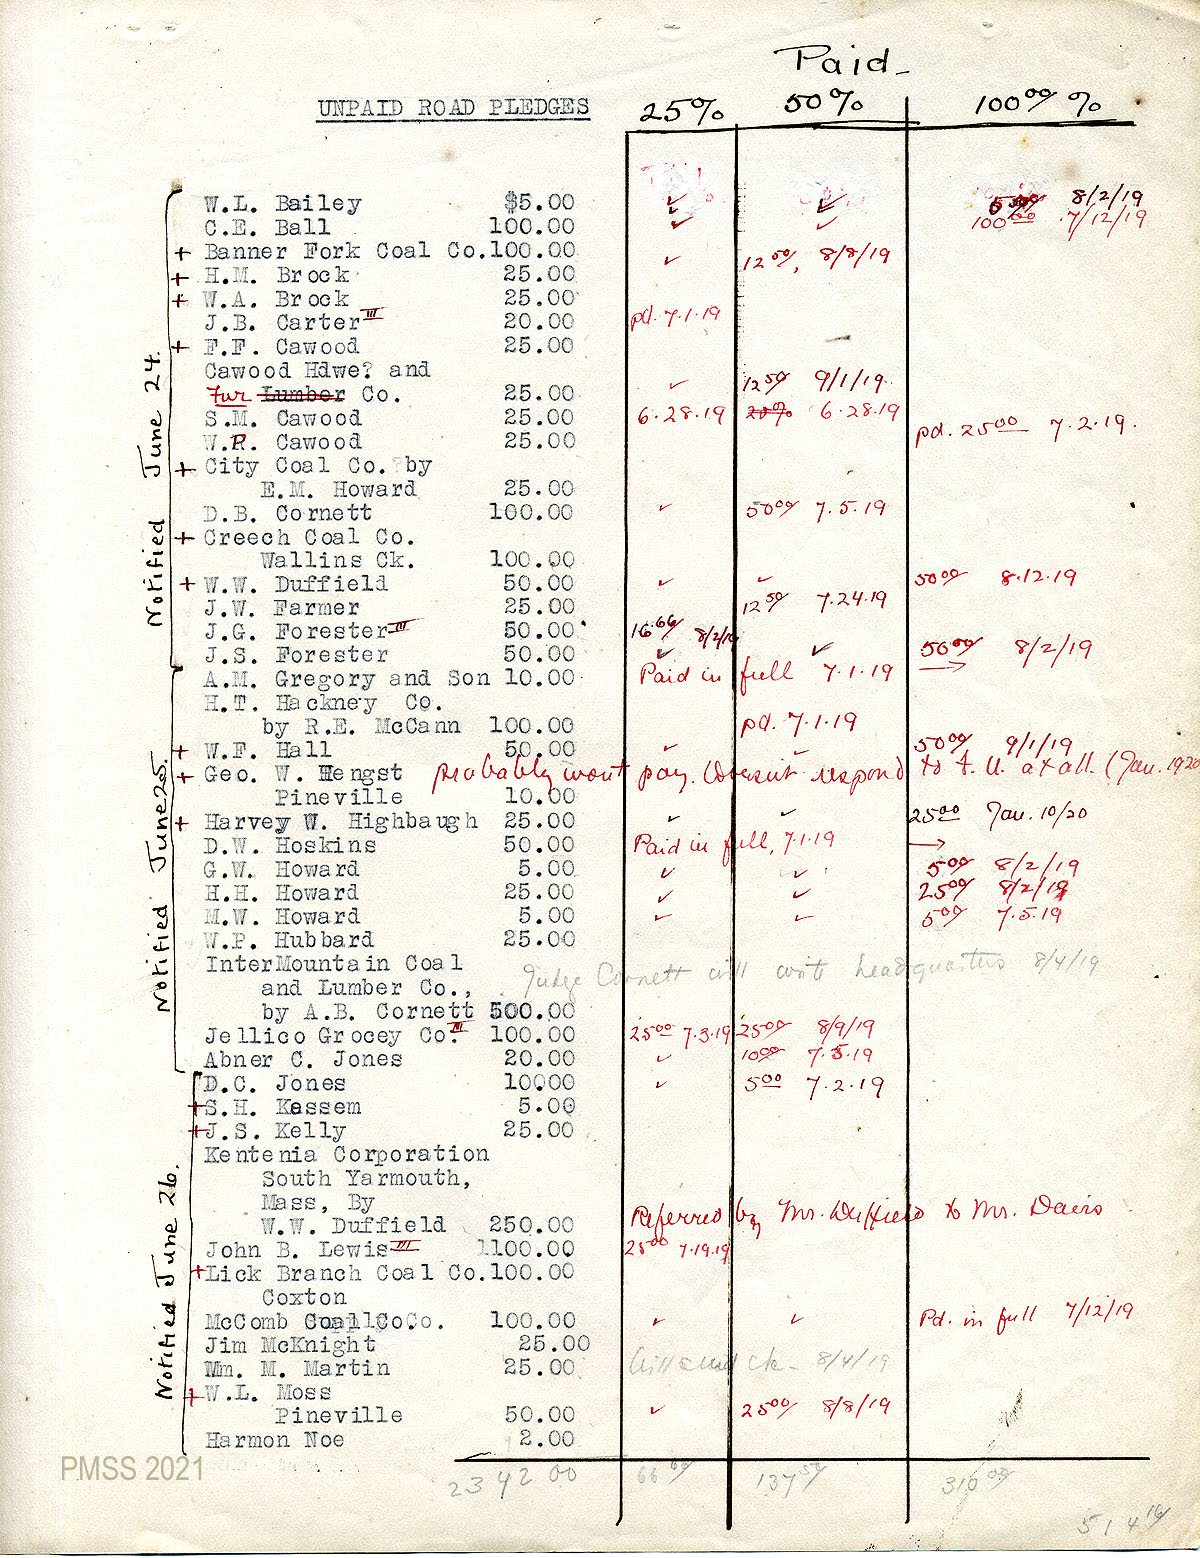 Paid
UNPAID ROAD PLEDGES 25% 50% 100⁰⁰ %
W.L. Bailey $5.00 ✓ ✓ 5⁰⁰ 8/2/19
C.E. Ball 100.00 ✓ ✓ 100⁰⁰ 7/12/19
+ Banner Fork Coal Co. 100.00 ✓ 12⁵⁰, 8/8/19
+ H.M. Brock 25.00
+ W.A. Brock 25.00
J.B. Carter III 20.00 pd. 7.1.19
+ F.F. Cawood 25.00
Cawood Hdwe? and
Fur Lumber Co. 25.00 ✓ 12⁵⁰ 9/1/19
S.M. Cawood 25.00 6.28.19 6.28.19
W.R. Cawood 25.00 pd. 25⁰⁰ 7.2.19.
+ City Coal Co. ?by
E.M. Howard 25.00
D.B. Cornett 100.00 ✓ 50⁰⁰ 7.5.19
+ Creech Coal Co.
Wallins Ck. 100.00
+ W.W. Duffield 50.00 ✓ ✓ 50⁰⁰ 8.12.19
J.W. Farmer 25.00 12⁵⁰ 7.24.19
J.G. Forester III 50.00 16⁶⁶ 8/2/19
J.S. Forester 50.00 ✓ ✓ 50⁰⁰ 8/2/19
A.M. Gregory and Son 10.00 Paid in full 7.1.19 →
H.T. Hackney Co.
by R.E. McCann 100.00 pd. 7.1.19
+ W.F. Hall 50.00 ✓ ✓ 50⁰⁰ 9/1/19
+ Geo. W. Hengst probably wont pay. Doesn't respond to F.U. at all. (Jan. 1920
Pineville 10.00
+ Harvey W. Highbaugh 25.00 ✓ ✓ 25⁰⁰ Jan. 10/20
D.W. Hoskins 50.00 Paid in full, 7.1.19 →
G.W. Howard 5.00 ✓ ✓ 5⁰⁰ 8/2/19
H.H. Howard 25.00 ✓ ✓ 25⁰⁰ 8/2/19
M.W. Howard 5.00 ✓ ✓ 5⁰⁰ 7.5.19
W.P. Hubbard 25.00
InterMountain Coal Judge Cornett will write headquarters 8/4/19
and Lumber Co.,
by A.B. Cornett 500.00
Jellico Grocey Co. III 100.00 25⁰⁰ 7.3.19 25⁰⁰ 8/9/19
Abner C. Jones 20.00 ✓ 10⁰⁰ 7.5.19
D.C. Jones 10000 ✓ 5⁰⁰ 7.2.19
+ S.H. Kassem 5.00
+ J.S. Kelly 25.00
Kentenia Corporation
South Yarmouth,
Mass, By
W.W. Duffield 250.00 Referred by Mr. Duffield to Mr. Davis
John B. Lewis III 1100.00 25⁰⁰ 7.19.19
+ Lick Branch Coal Co. 100.00
Coxton
McComb Co. 100.00 ✓ ✓ Pd. in full 7/12/19
Jim McKnight 25.00
Wm. M. Martin 25.00 Will send ck - 8/4/19
+ W.L. Moss
Pineville 50.00 ✓ 25⁰⁰ 8/8/19
Harmon Noe 2.00
2342 00 66⁶⁶ 137⁵⁰ 310⁰⁰
514¹⁶
Notified June 24.
Notified June 25.
Notified June 26.
PMSS 2021